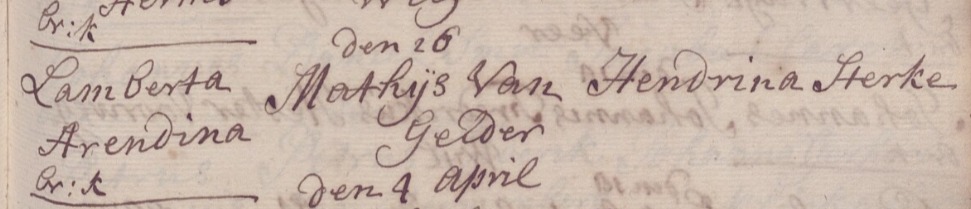 br:k
den 26
Lamberta Mathijs Van Hendrina Sterke
Arendina Gelder
br:k den 4 April